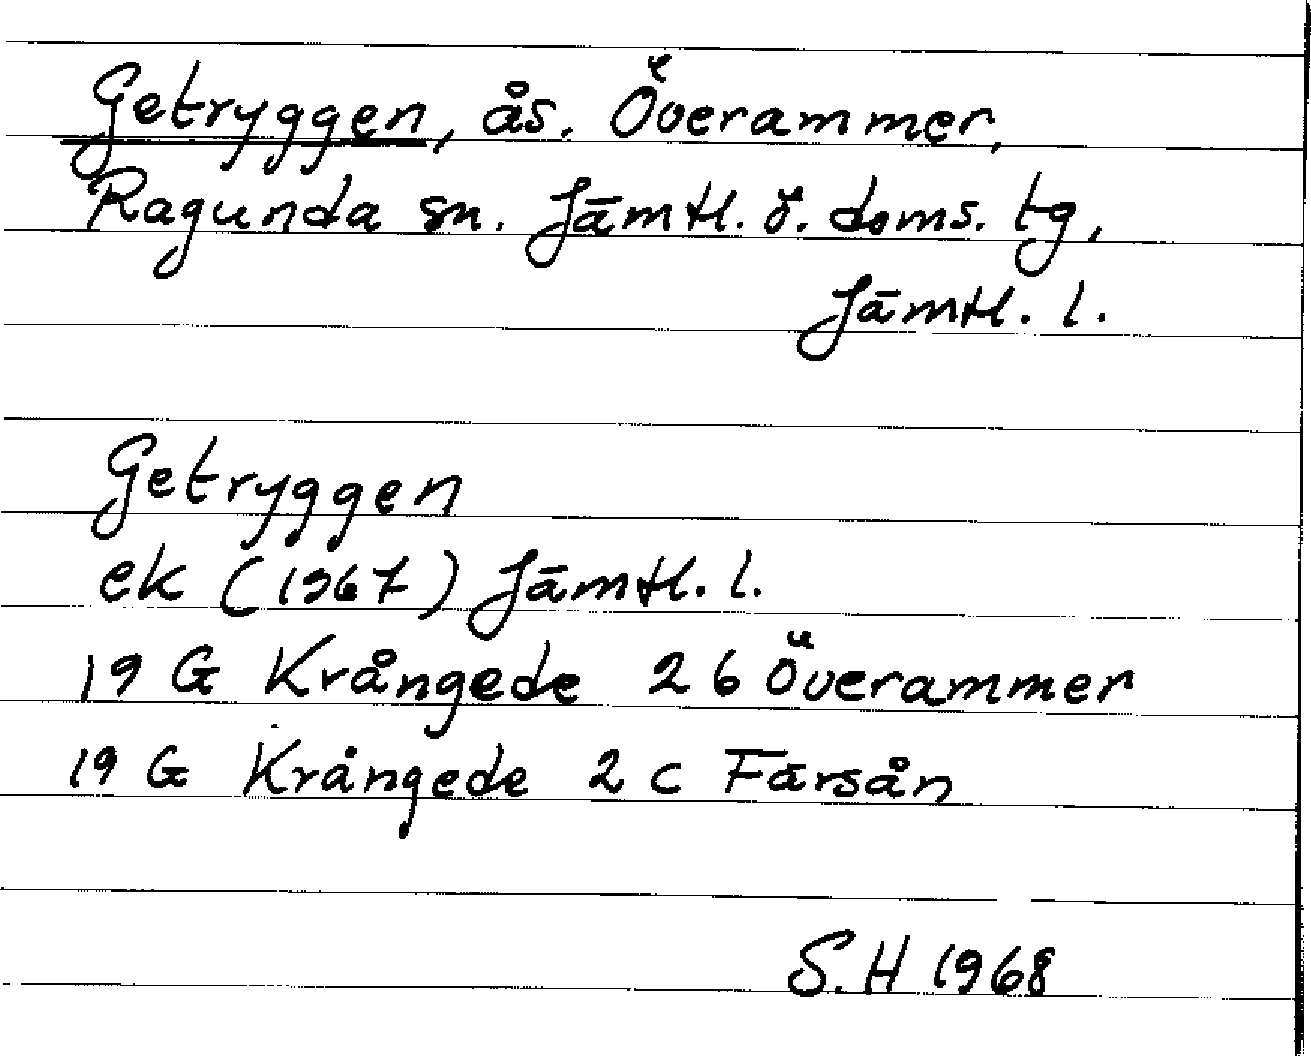 Getryggen, ås. Överammer,
Ragunda sn. Jämtl. ö. doms. tg,
Jämtl. l.
Getryggen
ek (1967) Jämtl. l.
19 G Krångede 2 b Överammer
19 G Krångede 2 c Färsån
S.H 1968